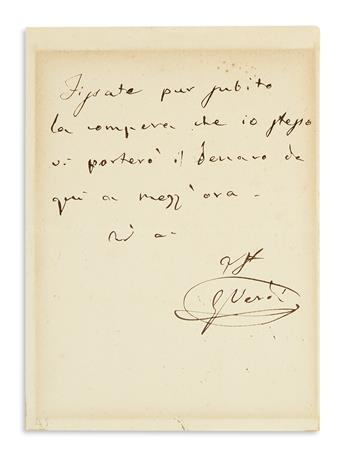 Fissate pur subito
la compera che io stesso
vi porterò il denaro da
quì a mezz'ora -
G Verdi